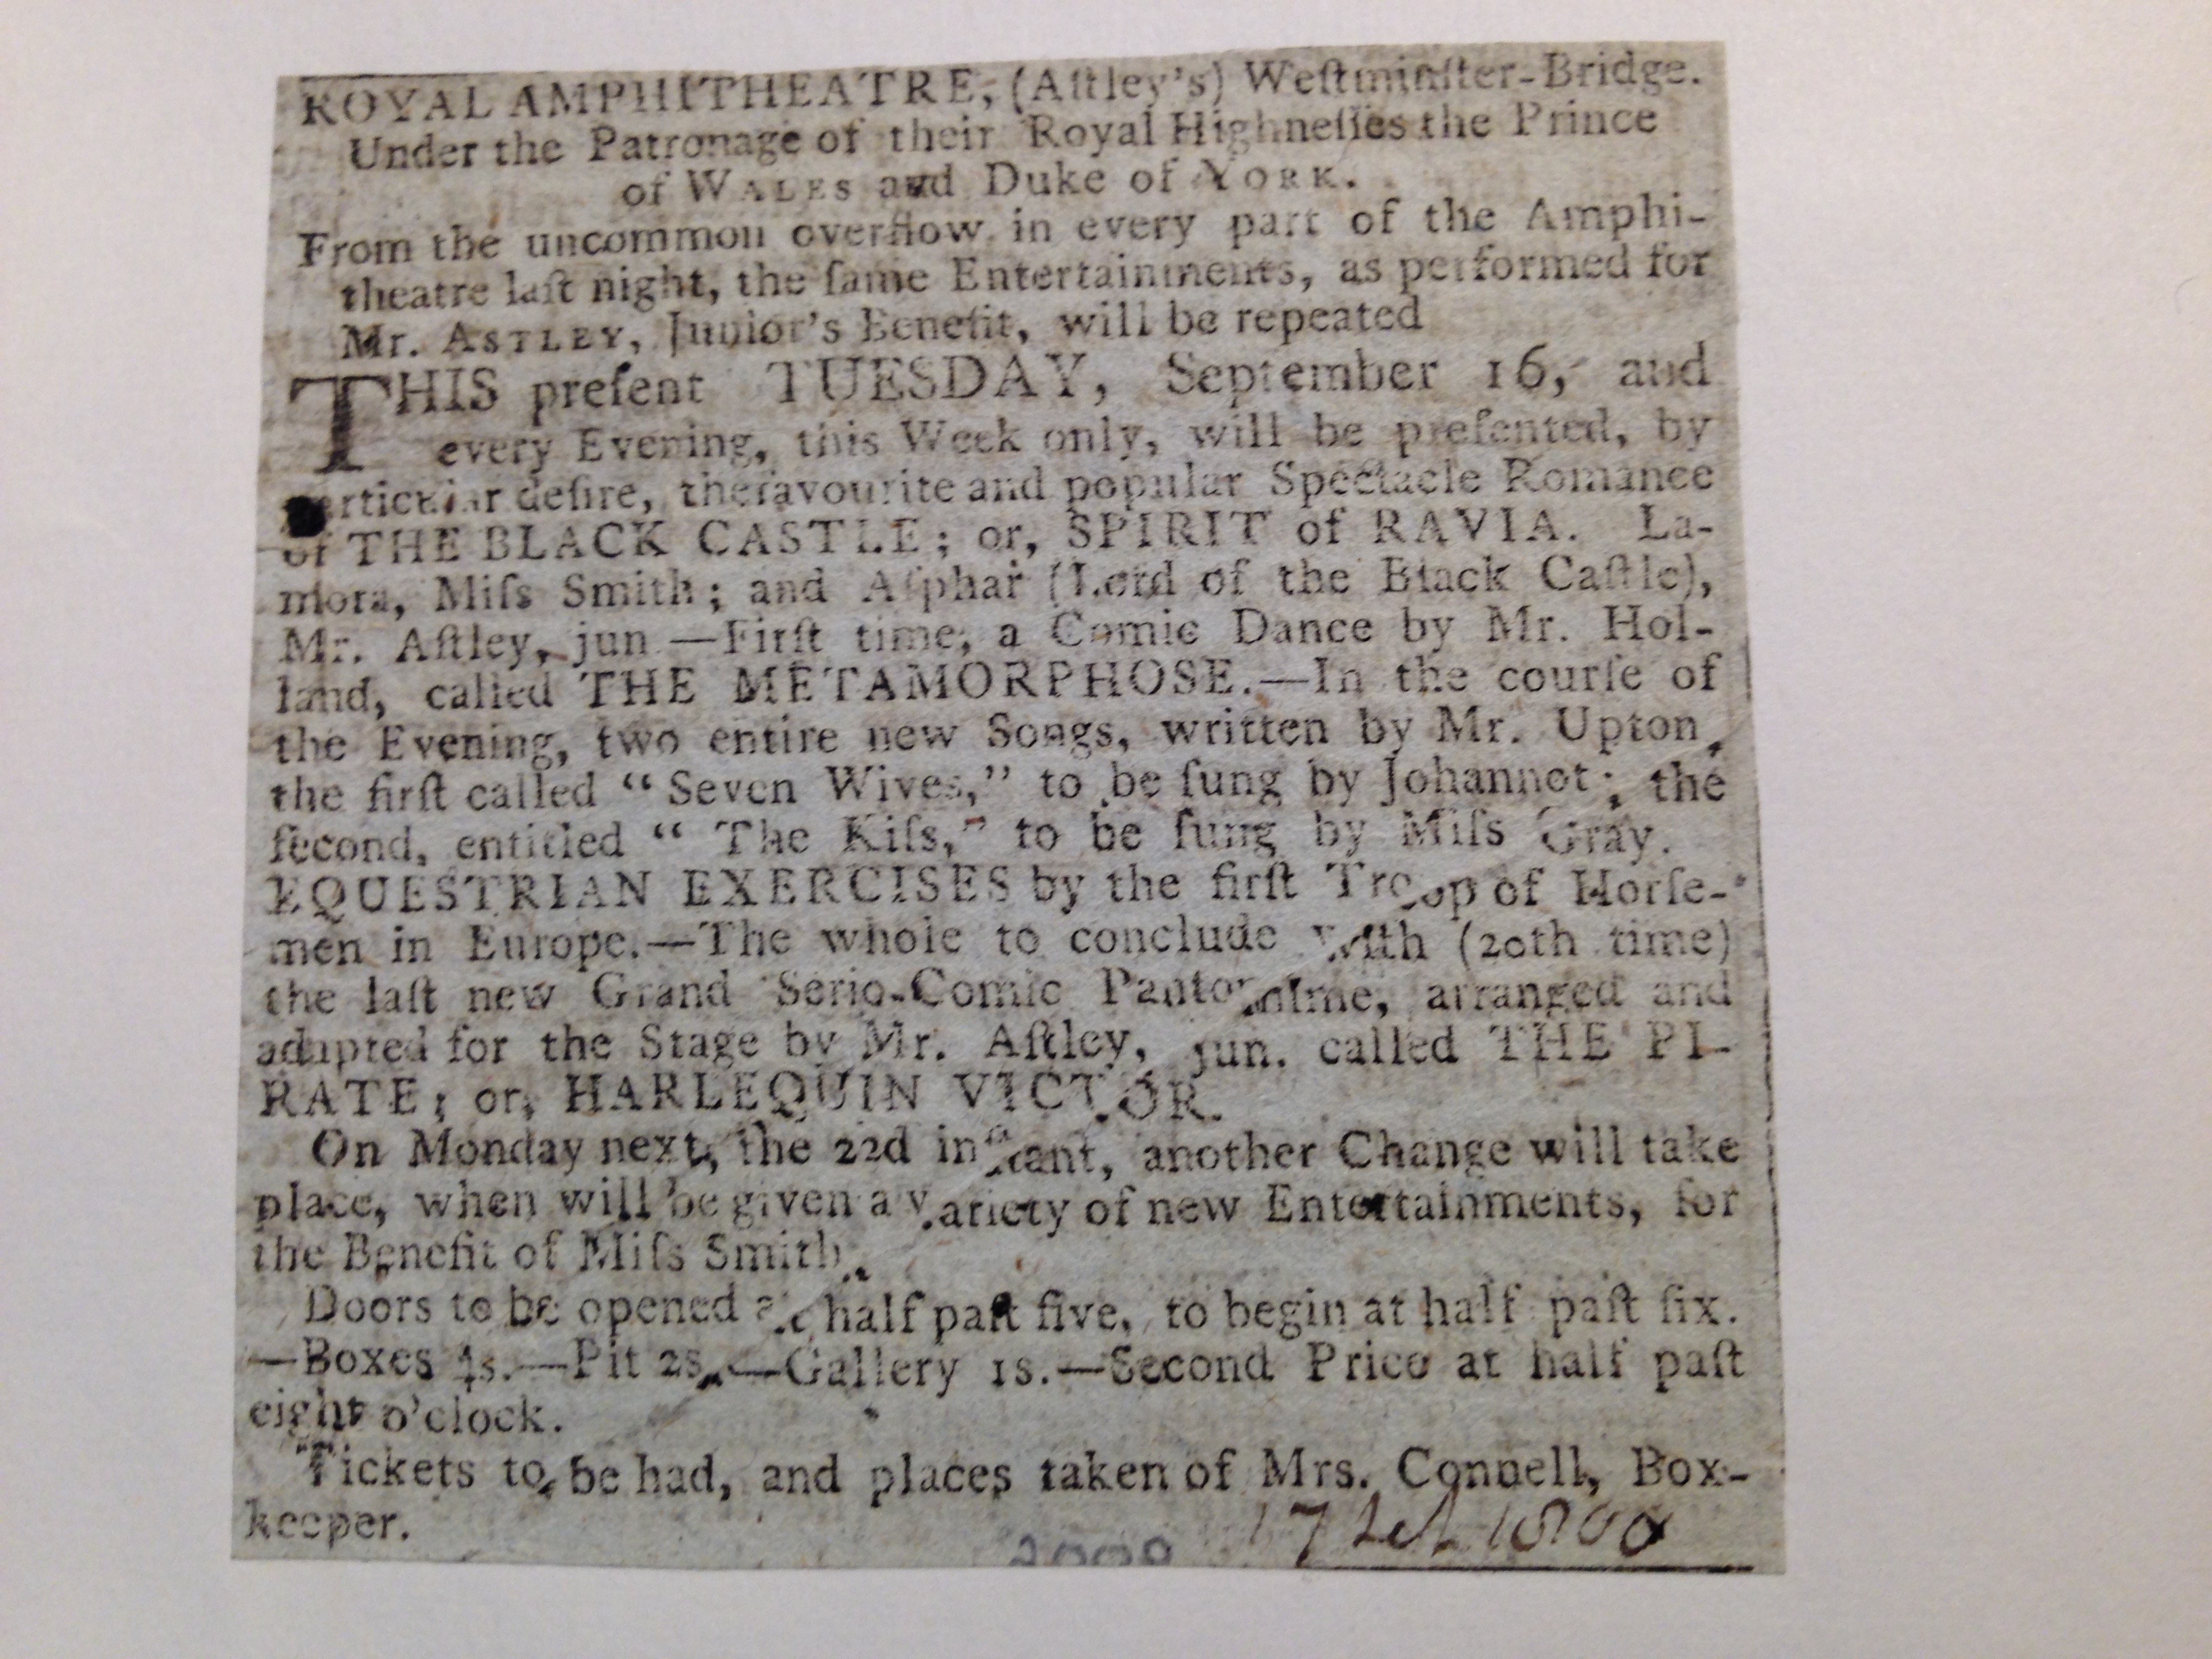 ROYAL AMPHITHEATRE, (Aſtley's) Weſtminſter-Bridge.
Under the Patronage of their Royal Highneſſes the Prince
of WALES and Duke of YORK.
From the uncommon overflow in every part of the Amphi-
theatre laſt night, the ſame Entertainments, as performed for
Mr. ASTLEY, Junior's Benefit, will be repeated
THIS preſent TUESDAY, September 16, and
every Evening, this Week only, will be preſented, by
particular deſire, the favourite and popular Spectacle Romance
of THE BLACK CASTLE; or, SPIRIT of RAVIA. La-
mora, Miſs Smith; and Aſphar (Lord of the Black Caſtle),
Mr. Aſtley, jun.—Firſt time, a Comic Dance by Mr. Hol-
land, called THE METAMORPHOSE.—In the courſe of
the Evening, two entire new Songs, written by Mr. Upton,
the firſt called "Seven Wives," to be ſung by Johannot; the
ſecond, entitled "The Kiſs," to be ſung by Miſs Gray.
EQUESTRIAN EXERCISES by the firſt Troop of Horſe-
men in Europe.—The whole to conclude with (20th time)
the laſt new Grand Serio-Comic Pantomime, arranged and
adapted for the Stage by Mr. Aſtley, jun. called THE PI-
RATE; or, HARLEQUIN VICTOR.
On Monday next, the 22d inſtant, another Change will take
place, when will be given a variety of new Entertainments, for
the Benefit of Miſs Smith.
Doors to be opened at half paſt five, to begin at half paſt ſix.
—Boxes 4s.—Pit 2s.—Gallery 1s.—Second Price at half paſt
eight o'clock.
Tickets to be had, and places taken of Mrs. Connell, Box-
keeper.
17 Set 1800